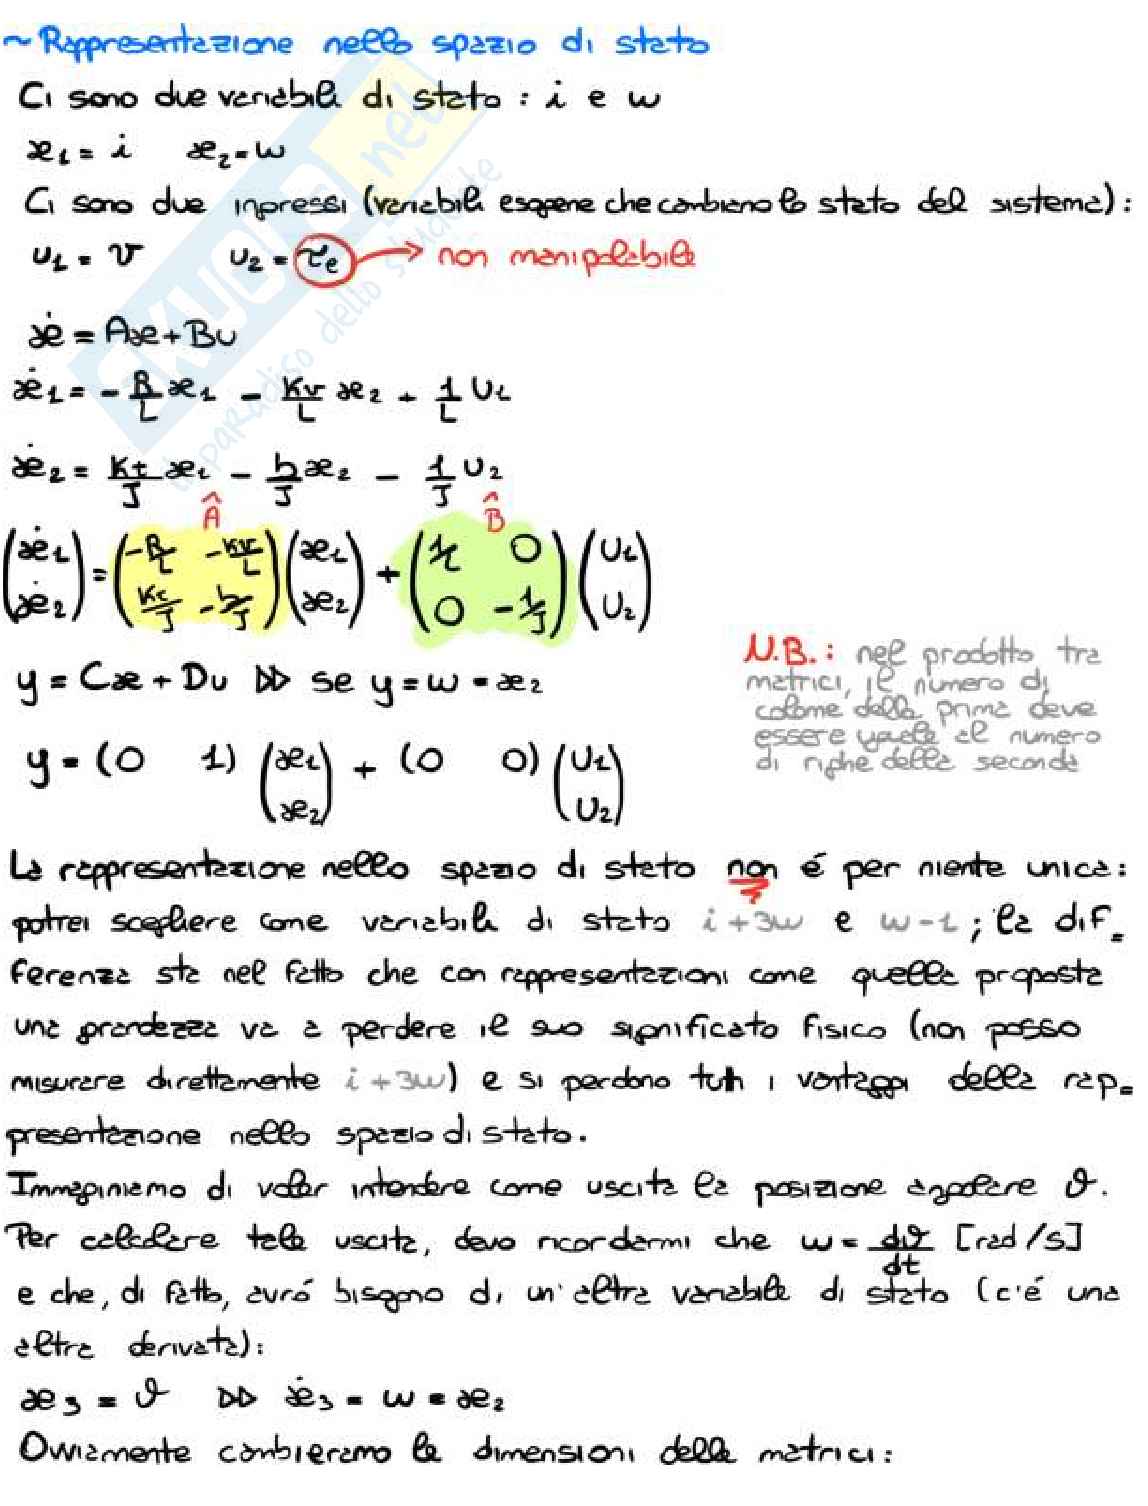 ~ Rappresentazione nello spazio di stato
Ci sono due variabili di stato : i e w
x₁ = i x₂ = w
Ci sono due ingressi (variabili esogene che cambiano lo stato del sistema) :
u₁ = v u₂ = τe → non manipolabile
ẋ = Ax + Bu
ẋ₁ = - R/L x₁ - Kv/L x₂ + 1/L u₁
ẋ₂ = Kt/J x₁ - b/J x₂ - 1/J u₂
Â B̂
(ẋ₁ ẋ₂) = (-R/L -Kv/L Kt/J -b/J) (x₁ x₂) + (1/L 0 0 -1/J) (u₁ u₂)
y = Cx + Du ▷▷ se y = w = x₂
N.B. : nel prodotto tra
matrici, il numero di
colonne della prima deve
essere uguale al numero
di righe della seconda
y = (0 1) (x₁ x₂) + (0 0) (u₁ u₂)
La rappresentazione nello spazio di stato non é per niente unica :
potrei scegliere come variabili di stato i + 3w e w - 1 ; la dif_
ferenza sta nel fatto che con rappresentazioni come quella proposta
una grandezza va a perdere il suo significato fisico (non posso
misurare direttamente i + 3w) e si perdono tutti i vantaggi della rap_
presentazione nello spazio di stato.
Immaginiamo di voler intendere come uscita la posizione angolare ϑ.
Per calcolare tale uscita, devo ricordarmi che w = dϑ/dt [rad/s]
e che, di fatto, avró bisogno di un'altra variabile di stato (c'é una
altra derivata) :
x₃ = ϑ ▷▷ ẋ₃ = w = x₂
Ovviamente cambieranno le dimensioni delle matrici :
SKUOLA.net
il paradiso dello studente